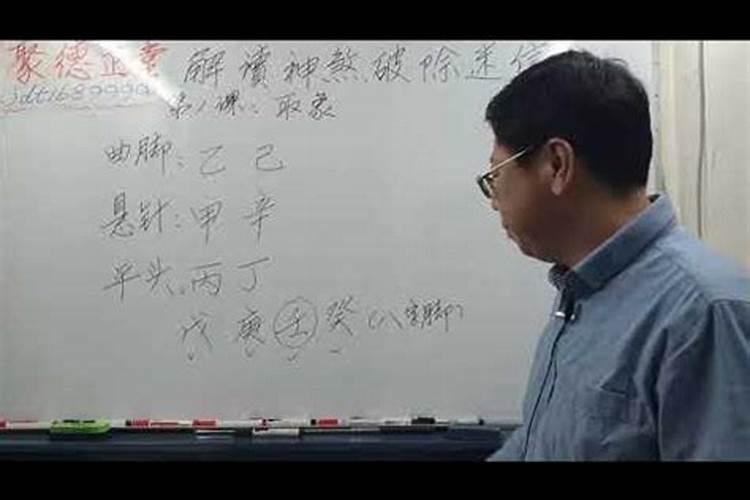 聚德正堂 解读神煞破除迷信
jdt1689999
第1课:取象
曲脚:乙己
悬针:甲辛
平头:丙丁
戊庚壬癸(八字脚)